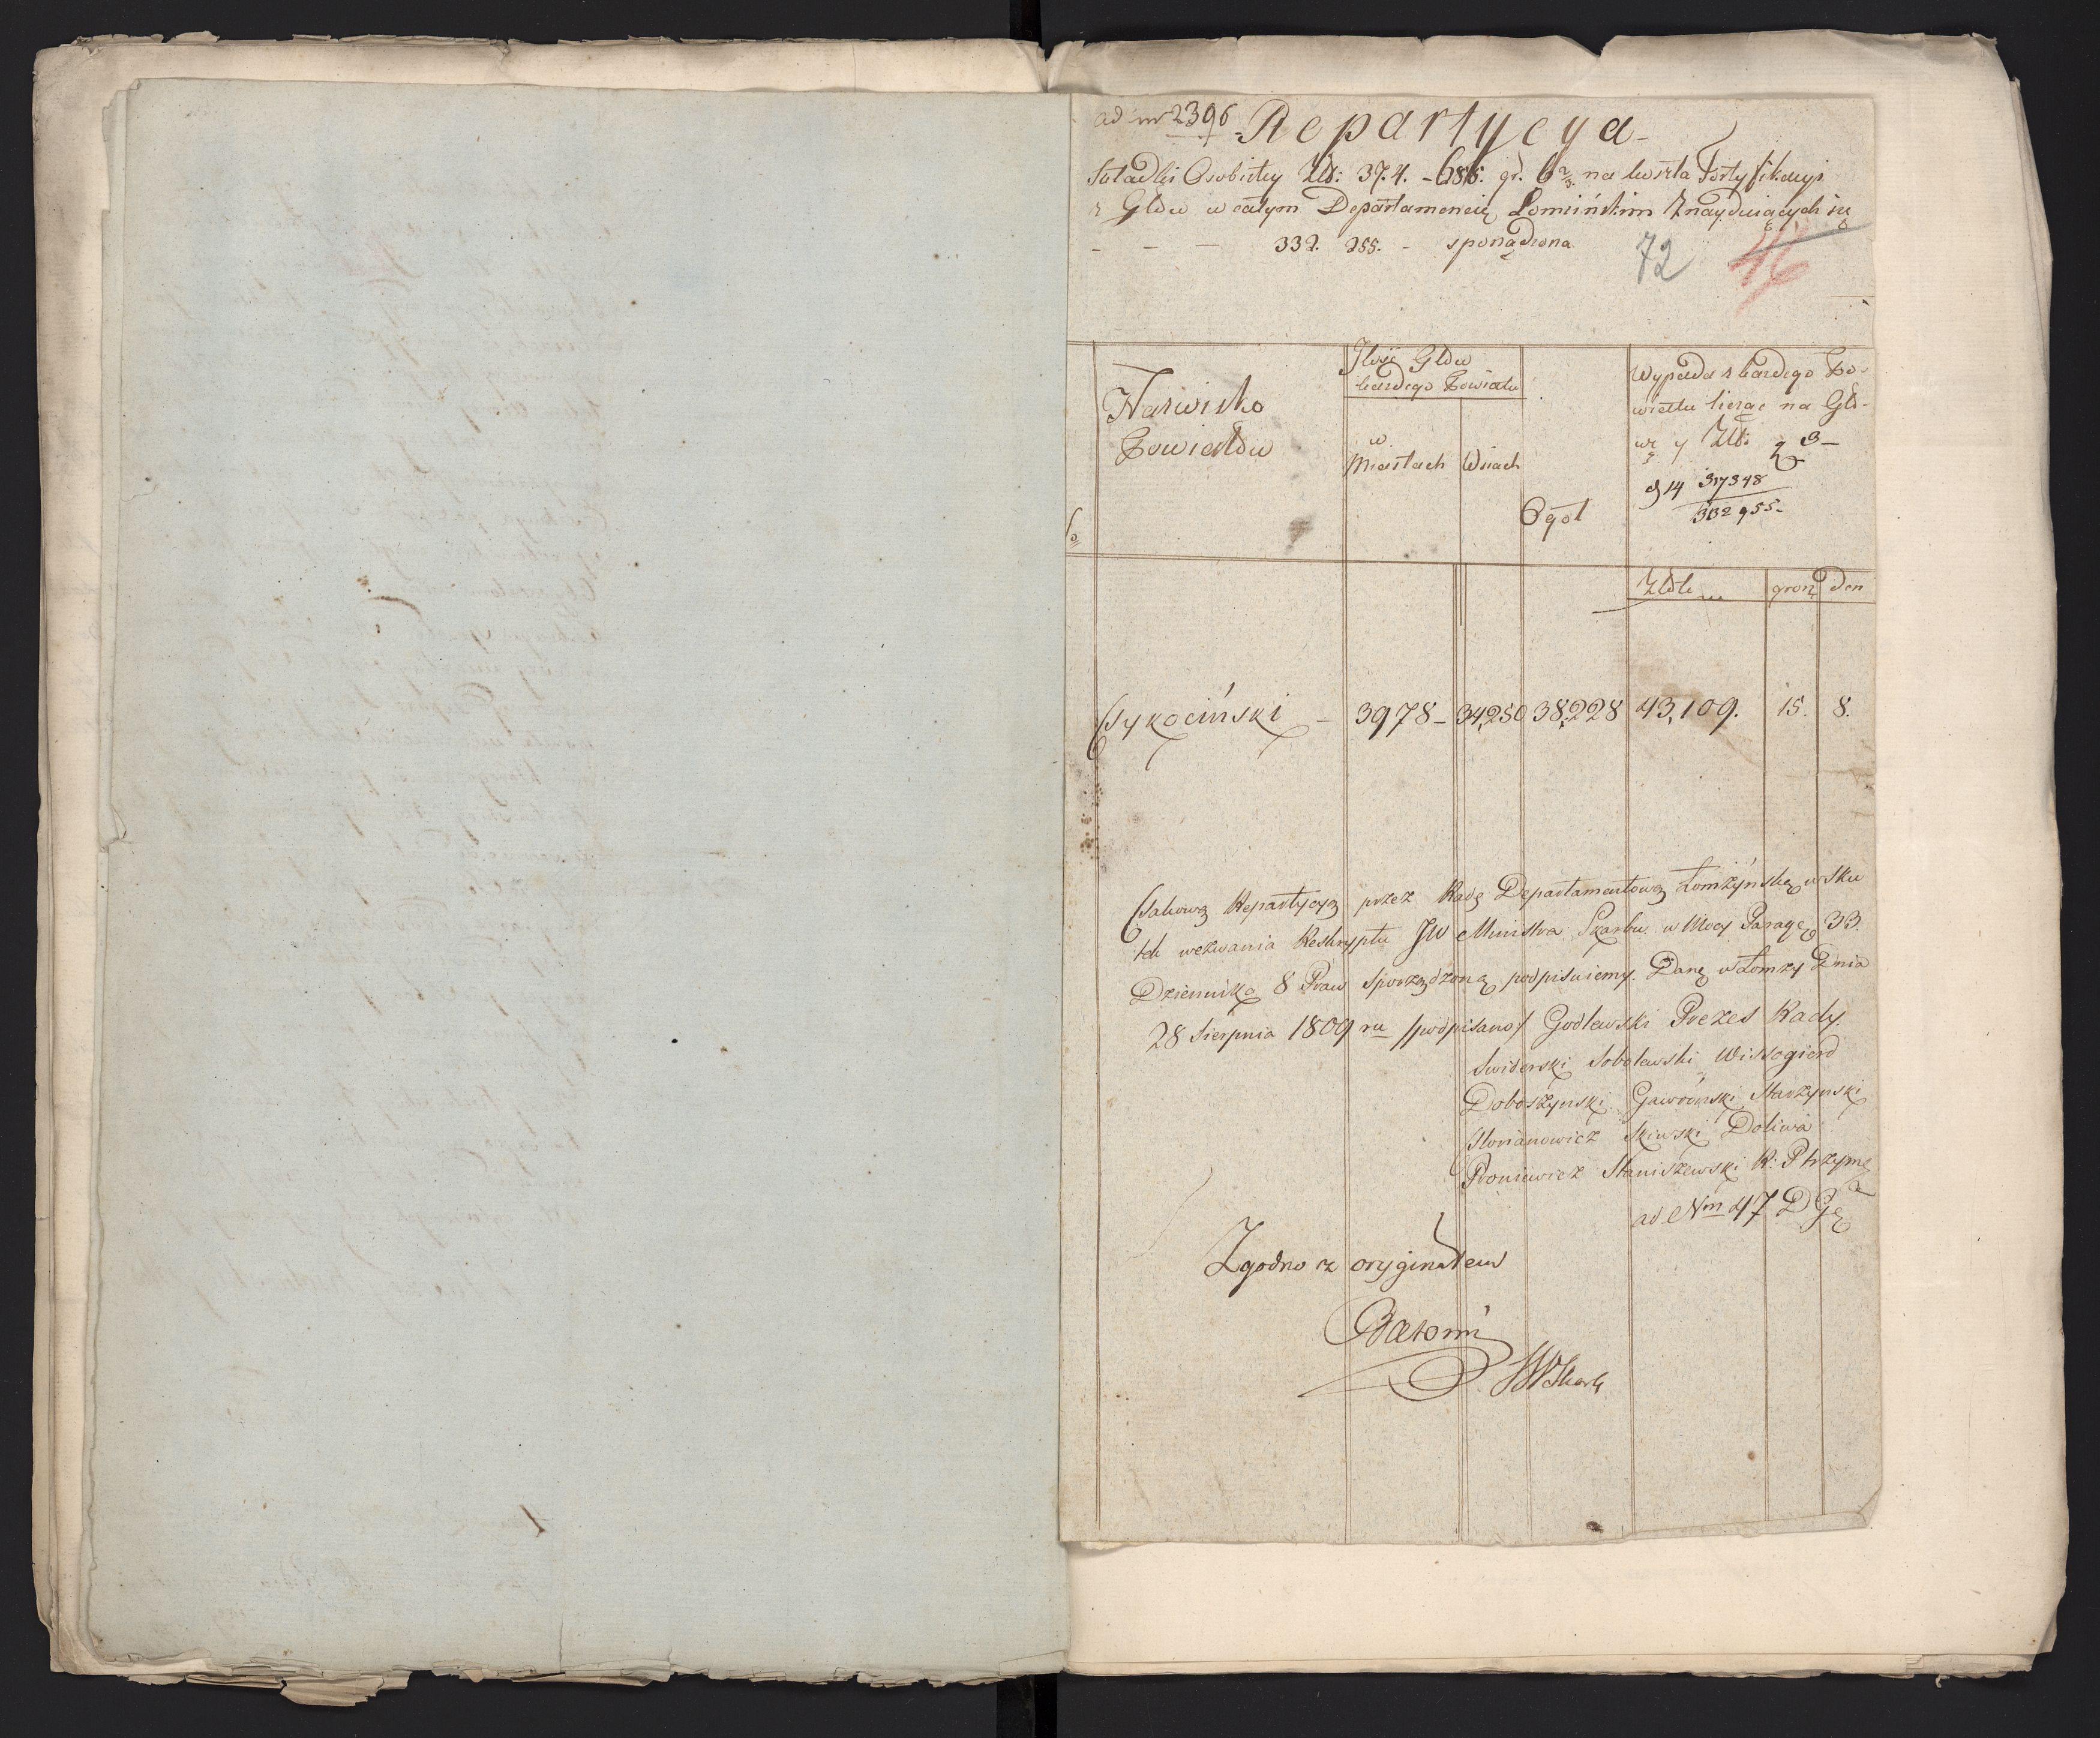 ad nr 2396
Repartycya
Składki Osobistey Zł: 37.4. - 686. gr. 6 2/3. na koszta Fortyfikacyi
z Głów w całym Departamencie Łomińskim Znayduiących się
- - - 332. 955. - sporządzona
72 46
Nazwisko
Powiatów
Ilość Głów
każdego Powiatu
w
Miastach
Wsiach
Ogół
Wypada z każdego Po-
wiatu licząc na Gło-
wę y Zł:
g 14 317348
332 955-
Złote
groszy
den
Tykociński - 3978 - 34,250 38,228 43,109. 15. 8.
Takową Repartycyą przez Radę Departamentową Łomżyńską w sku
tek wezwania Reskryptu JW Ministra Skarbu w Mocy Paragr 33.
Dziennika 8 Praw Sporządzoną podpisuiemy. Dane w Łomży Dnia
28 Sierpnia 1809 ru /podpisano/ Godlewski Prezes Rady.
Swiderski Sobolewski Wissogierd
Doboszynski Gawroński Starzynski
Skiwski Doliwa
Proniewicz Staniszewski R:
ad Nm 47 D
Zgodno z oryginałem